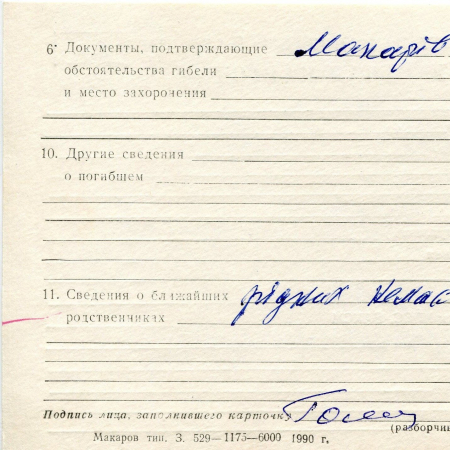 6• Документы, подтверждающие Макарів
обстоятельства гибели
и место захоронения
10. Другие сведения
о погибшем
11. Сведения о ближайших рідних немає
родственниках
Подпись лица, заполнившего карточку
(разборчи
Макаров тип. З. 529—1175—6000 1990 г.